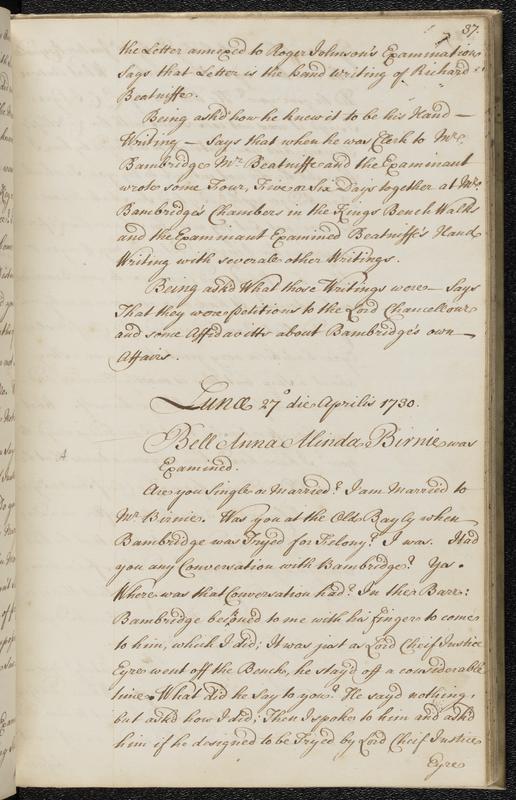 37.
the Letter annexed to Roger Johnson's Examination
says that Letter is the hand writing of Richard
Beatniffe.
Being ask'd how he knew it to be his Hand —
Writing — Says that when he was Clerk to Mr.
Bambridge Mr. Beatniffe and the Examinant
wrote some Four, Five or Six Days together at Mr.
Bambridge's Chambers in the Kings Bench Walks
and the Examinant Examined Beatniffe's Hand
Writing with severale other Writings.
Being ask'd What those Writings were — Says
That they were Petitions to the Lord Chancellour
and some Affidavitts about Bambridge's own —
Affairs.
Lunæ 27o die Aprilis 1730.
Bell Anna Alinda Birnie was
Examined.
Are you Single or Married? I am Married to
Mr. Birnie. Was you at the Old Bayly when
Bambridge was Tryed for Felony? I was. Had
you any Conversation with Bambridge? Yes.
Where was that Conversation had? In the Bare:
Bambridge beckned to me with his fingers to come
to him, which I did; It was just as Lord Cheif Justice
Eyre went off the Bench, he stay'd off a considerable
time. What did he say to you? He sayd nothing,
but ask'd how I did; Then I spoke to him and ask'd
him if he designed to be Tryed by Lord Cheif Justice
Eyre